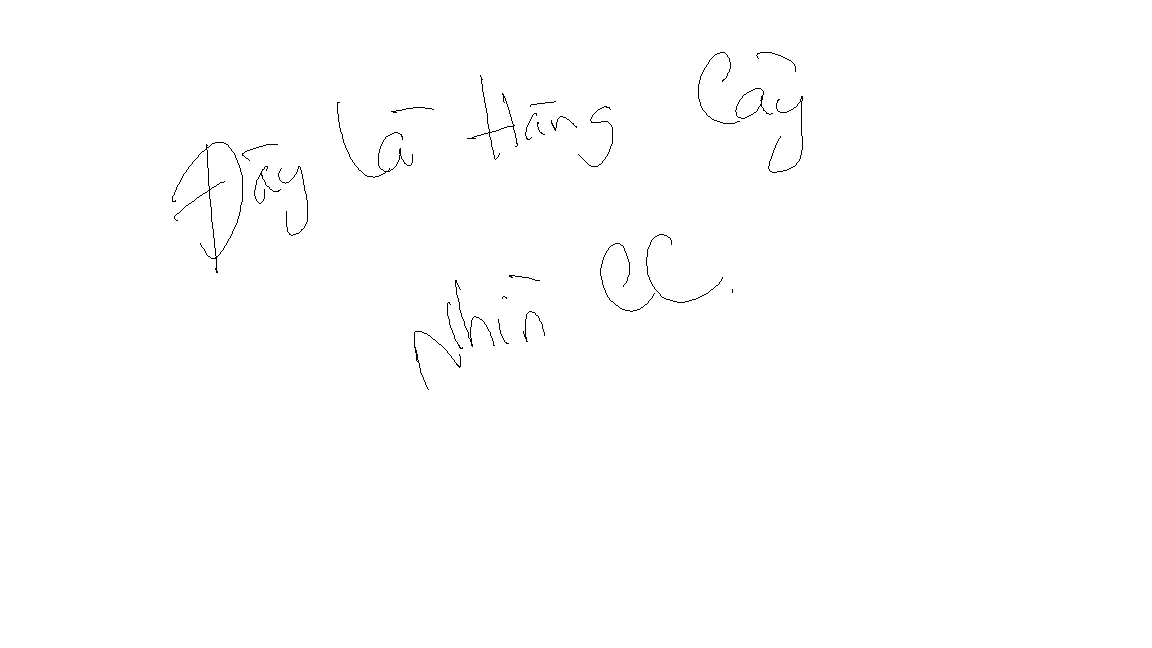 Đây là Hàng Cây
Nhìn CC.